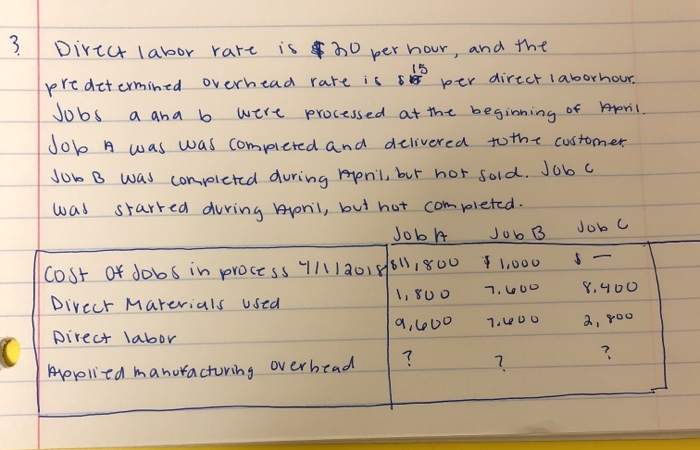 3. Direct labor rate is $20 per hour, and the
predetermined overhead rate is $15 per direct laborhour.
Jobs a and b were processed at the beginning of April.
Job A was was completed and delivered to the customer
Job B was completed during April, but not sold. Job C
was started during April, but not completed.
Job A Job B Job C
Cost of Jobs in process 4/1/2018 $11,800 $1,000 $ —
Direct Materials used 1,800 7.600 8.400
Direct labor 9,600 7,600 2,800
Applied manufacturing overhead ? ? ?